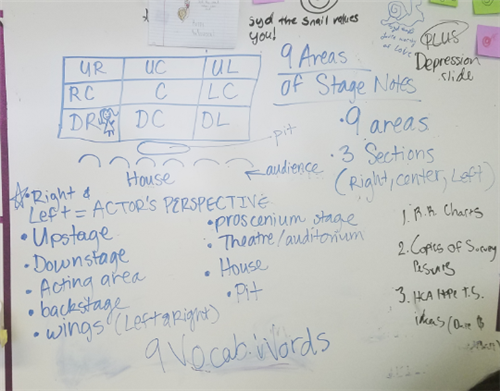 Syd the Snail values
you!
PLUS
Depression
slide
9 Areas
of Stage Notes
UR UC UL
RC C LC
DR DC DL
pit
audience
House
• 9 areas
• 3 Sections
(Right, center, Left)
• Right &
Left = ACTOR'S PERSPECTIVE
• Upstage
• Downstage
• Acting area
• backstage
• wings (Left & Right)
• proscenium stage
• Theatre/auditorium
• House
• Pit
9 Vocab Words
1. R.A. Charts
2. Copies of Survey
Results
3. HCA Hope T.S.
ideas (Date &